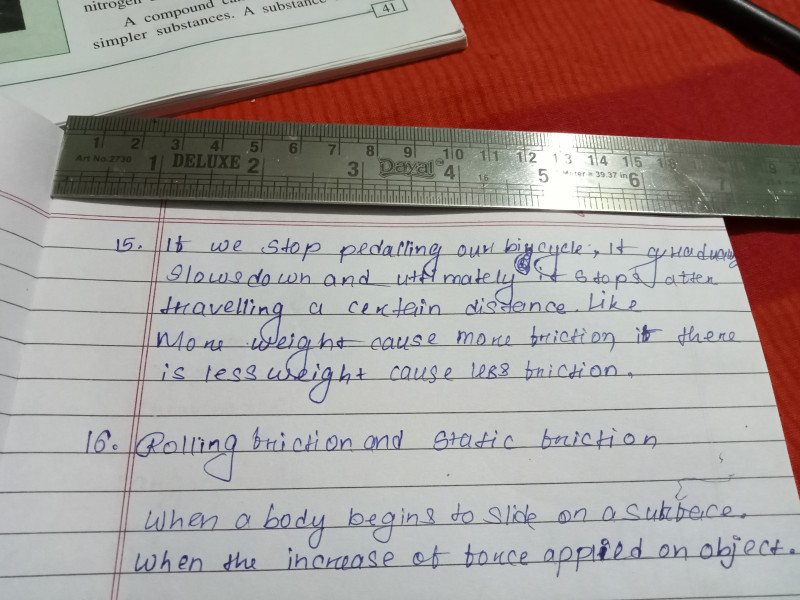 nitrogen
A compound
simpler substances. A substance
41
1 2 3 4 5 6 7 8 9 10 11 12 13 14 15
Art No.2730 1 DELUXE 2 3 Dayal 4 5 Meter = 39.37 in 6 7
15. If we stop pedalling our bicycle, It gradually
slows down and ultimately it stops after
travelling a certein distance. Like
More weight cause more friction if there
is less weight cause less friction.
16. Rolling friction and static friction
When a body begins to slide on a surface.
When the increase of force applied on object.